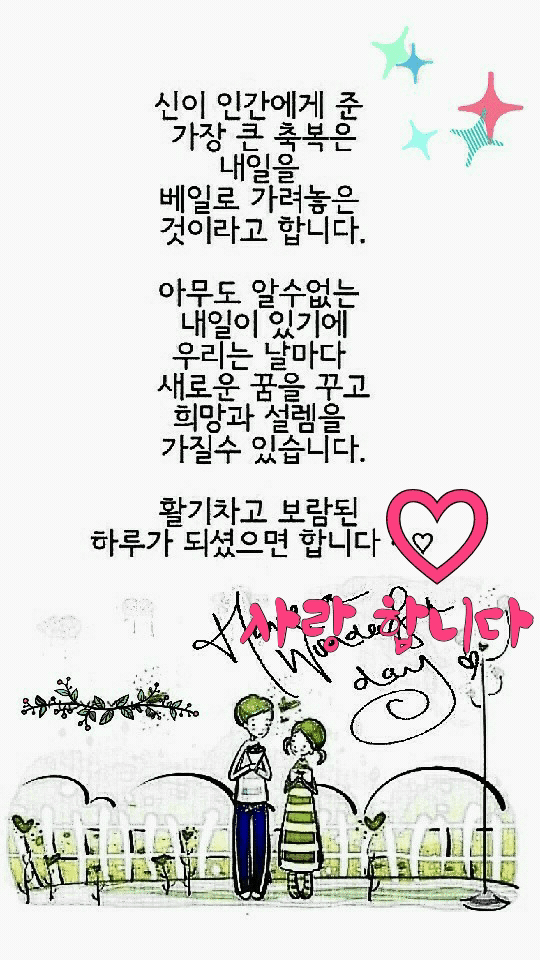 신이 인간에게 준
가장 큰 축복은
내일을
베일로 가려놓은
것이라고 합니다.
아무도 알수없는
내일이 있기에
우리는 날마다
새로운 꿈을 꾸고
희망과 설렘을
가질수 있습니다.
활기차고 보람된
하루가 되셨으면 합니다
사랑 합니다
Have a
Wonderful
day